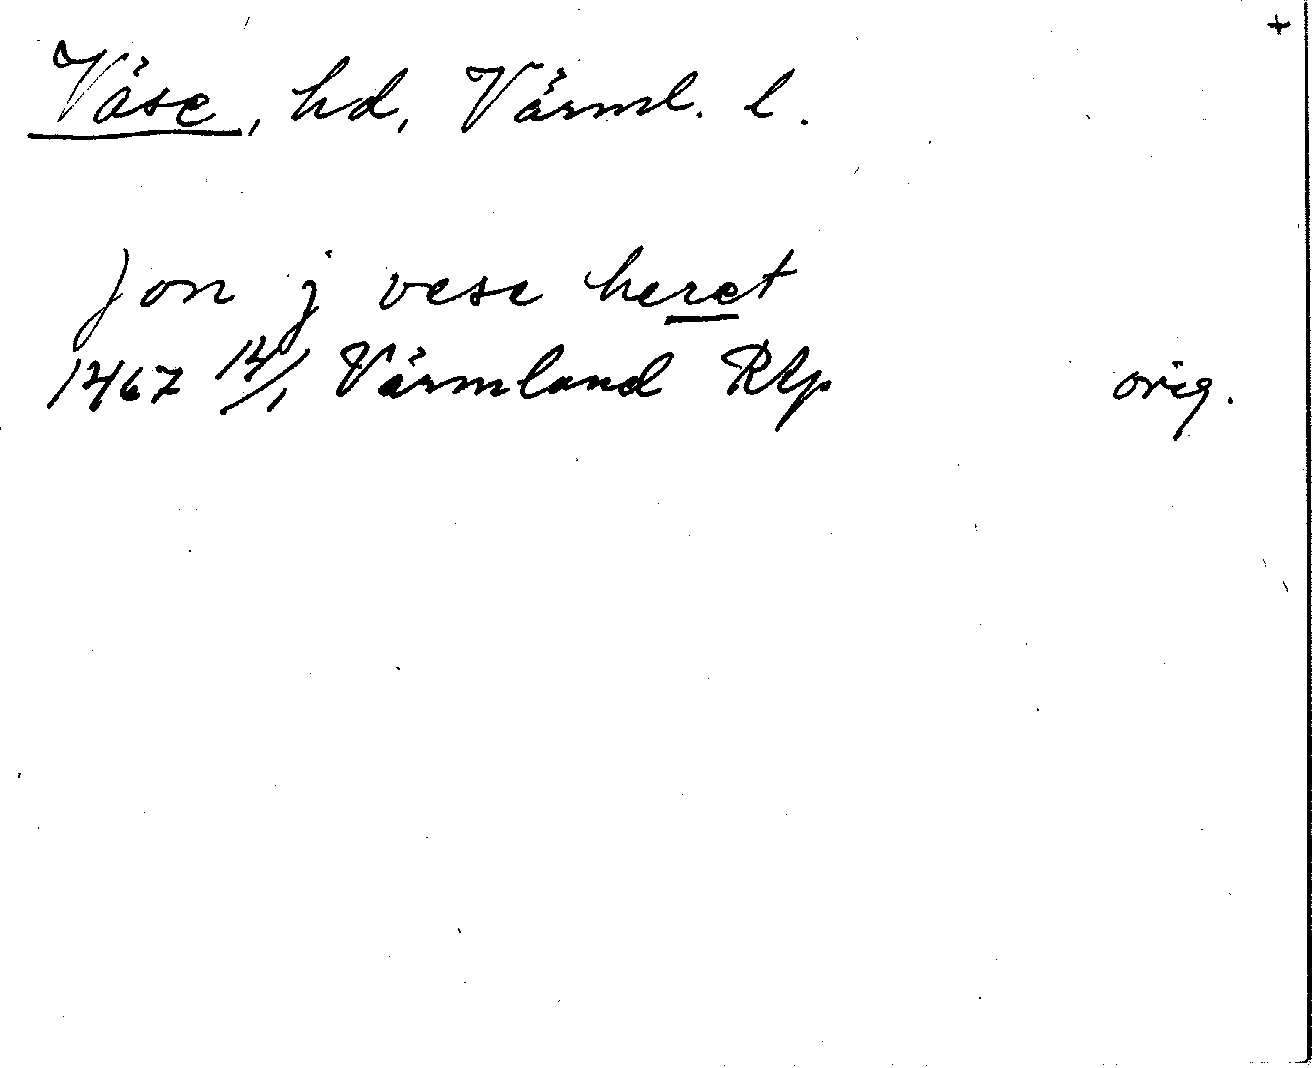 +
Väse, hd, Värml. l.
jon j vese heret
1467 14/1 Värmland RAp orig.